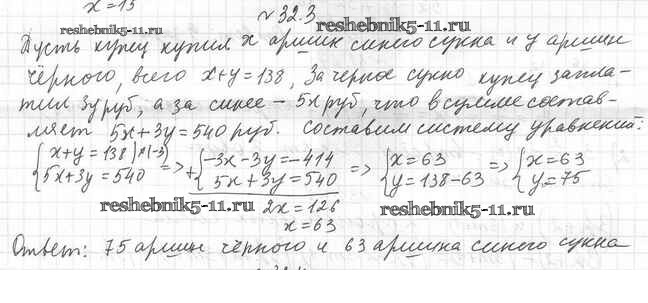 x = 13
№ 32.3
reshebnik5-11.ru
Пусть купец купил x аршин синего сукна и y аршин
чёрного, всего x+y=138, За черное сукно купец запла-
тил 3y руб, а за синее – 5x руб, что в сумме состав-
ляет 5x+3y=540 руб. Составим систему уравнений:
{x+y=138 |×(-3) => +{-3x-3y=-414 => {x=63 => {x=63
5x+3y=540 5x+3y=540 y=138-63 y=75
reshebnik5-11.ru 2x=126 reshebnik5-11.ru
x=63
Ответ: 75 аршин чёрного и 63 аршина синего сукна